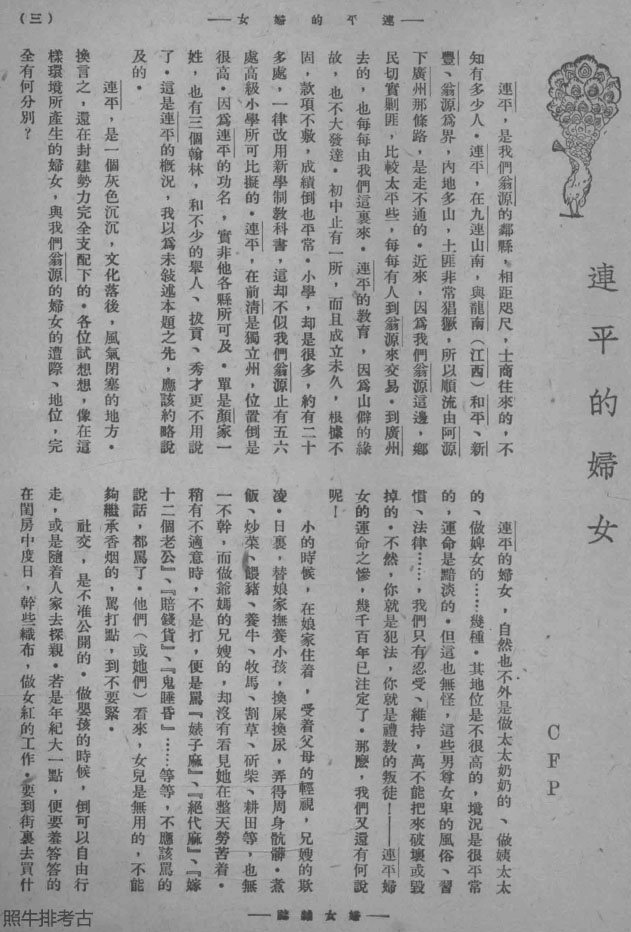 （三）
連平的婦女
連平的婦女
CFP
連平，是我們翁源的鄰縣，相距咫尺，士商往來的，不
知有多少人．連平，在九連山南，與龍南（江西）和平、新
豐、翁源爲界，內地多山，土匪非常猖獗，所以順流由阿源
下廣州那條路，是走不通的．近來，因爲我們翁源這邊，鄉
民切實剿匪，比較太平些，每每有人到翁源來交易．到廣州
去的，也每每由我們這裏來．連平的教育，因爲山僻的緣
故，也不大發達．初中止有一所，而且成立未久，根據不
固，款項不敷，成績倒也平常．小學，却是很多，約有二十
多處，一律改用新學制教科書，這却不似我們翁源止有五六
處高級小學所可比擬的．連平，在前清是獨立州，位置倒是
很高．因爲連平的功名，實非他各縣所可及．單是顏家一
姓，也有三個翰林，和不少的舉人、拔貢、秀才更不用說
了．這是連平的槪況，我以爲未敍述本題之先，應該約略說
及的．
連平，是一個灰色沉沉，文化落後，風氣閉塞的地方．
換言之，還在封建勢力完全支配下的．各位試想想，像在這
樣環境所產生的婦女，與我們翁源的婦女的遭際、地位，完
全有何分別？
連平的婦女，自然也不外是做太太奶奶的、做姨太太
的、做婢女的……幾種．其地位是不很高的，境況是很平常
的，運命是黯淡的．但這也無怪，這些男尊女卑的風俗、習
慣、法律……，我們只有忍受、維持，萬不能把來破壞或毀
掉的．不然，你就是犯法，你就是禮教的叛徒！——連平婦
女的運命之慘，幾千百年已注定了．那麽，我們又還有何說
呢！
小的時候，在娘家住着，受着父母的輕視，兄嫂的欺
凌．日裏，替娘家撫養小孩，換屎換尿，弄得周身骯髒．煮
飯、炒菜、餵豬、養牛、牧馬、割草、斫柴、耕田等，也無
一不幹，而做爺媽的兄嫂的，却沒有看見她在整天勞苦着．
稍有不適意時，不是打，便是罵『婊子麻』、『絕代麻』、『嫁
十二個老公』、『賠錢貨』、『鬼睡昏』……等等，不應該罵的
說話，都罵了．他們（或她們）看來，女兒是無用的，不能
夠繼承香烟的，罵打點，到不要緊．
社交，是不准公開的．做嬰孩的時候，倒可以自由行
走，或是隨着人家去探親．若是年紀大一點，便要羞答答的
在閨房中度日，幹些織布，做女紅的工作．要到街裏去買什
婦女雜誌
照牛排考古